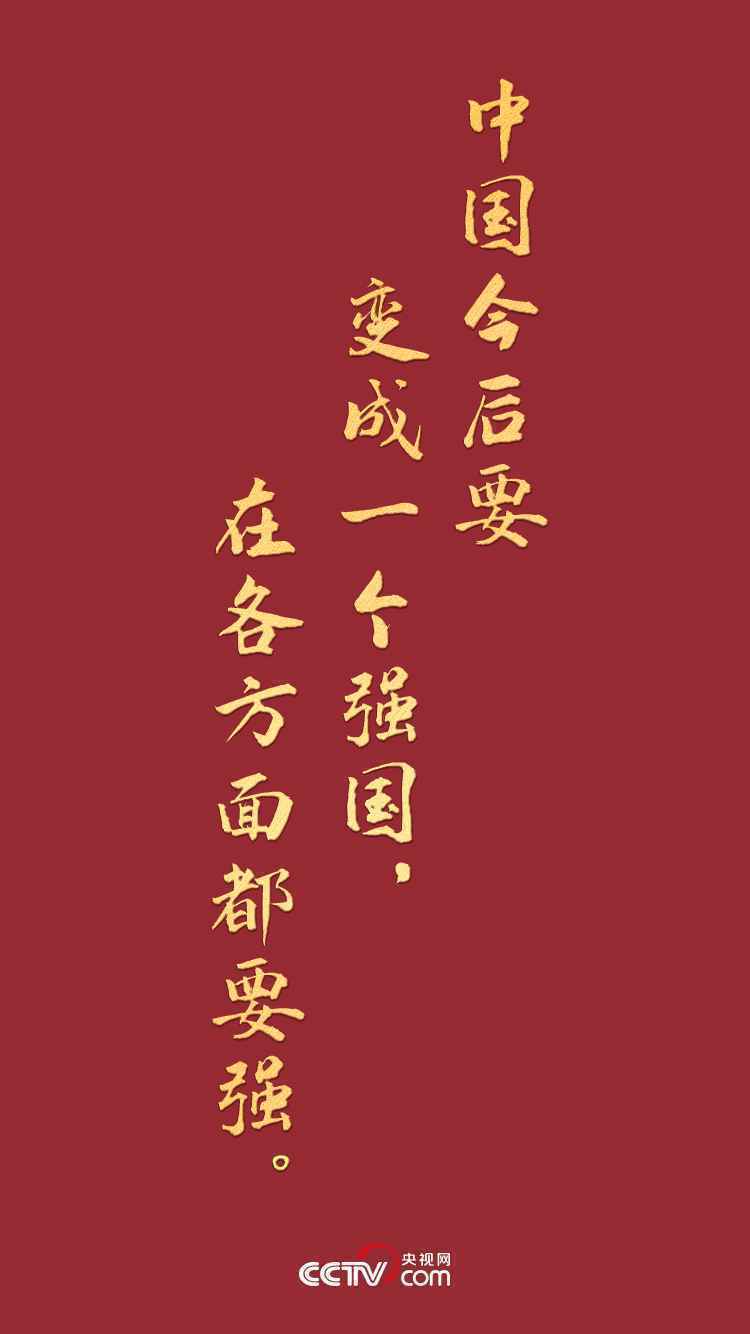 中国今后要
变成一个强国，
在各方面都要强。
央视网
CCTV com